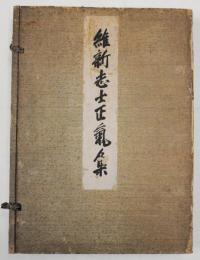 維新志士正氣集